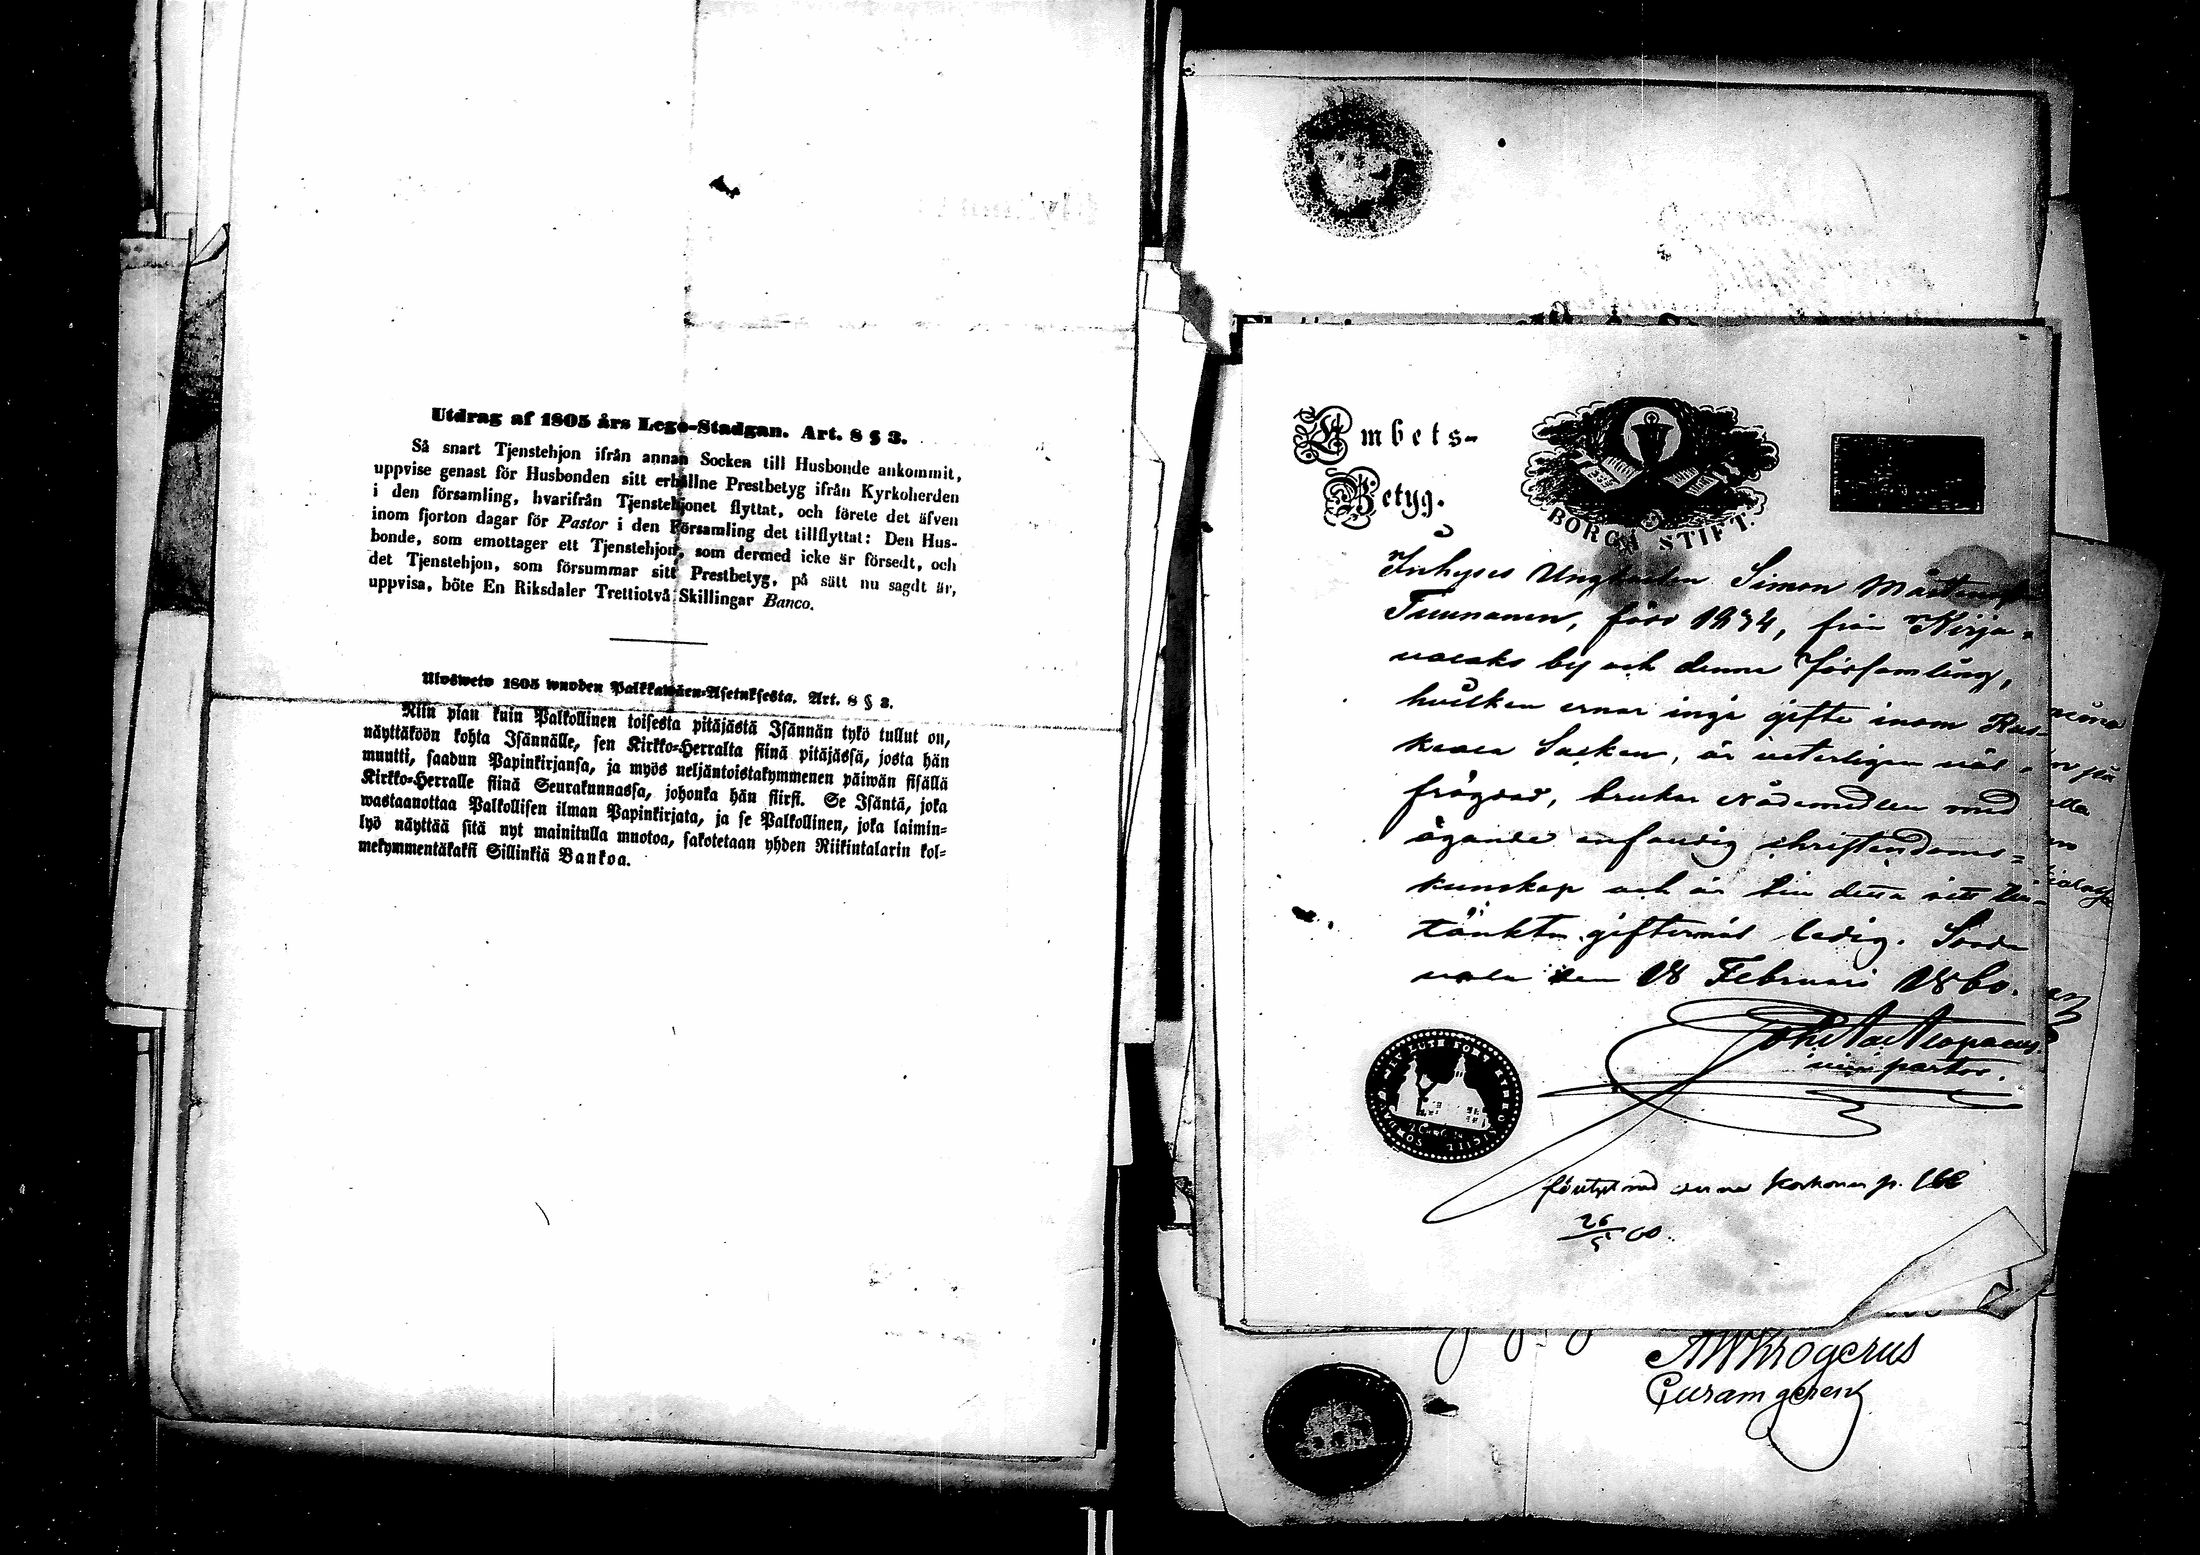 Utdrag af 1805 års Lego-Stadgan. Art. 8 § 3.
Så snart Tjenstehjon ifrån annan Socken till Husbonde ankommit,
uppvise genast för Husbonden sitt erhållne Prestbetyg ifrån Kyrkoherden
i den församling, hvarifrån Tjenstehjonet flyttat, och förete det äfven
inom fjorton dagar för Pastor i den Församling det tillflyttat: Den Hus-
bonde, som emottager ett Tjenstehjon, som dermed icke är försedt, och
det Tjenstehjon, som försummar sitt Prestbetyg, på sätt nu sagdt är,
uppvisa, böte En Riksdaler Trettiotvå Skillingar Banco.
Ulosweto 1805 wuoden Palkkawäen-Asetuksesta. Art. 8 § 3.
Niin pian kuin Palkollinen toisesta pitäjästä Isännän tykö tullut on,
näyttäköön kohta Isännälle, sen Kirkko-Herralta siinä pitäjässä, josta hän
muutti, saadun Papinkirjansa, ja myös neljäntoistakymmenen päiwän sisällä
Kirkko-Herralle siinä Seurakunnassa, johonka hän siirsi. Se Isäntä, joka
wastaanottaa Palkollisen ilman Papinkirjata, ja se Palkollinen, joka laimin-
lyö näyttää sitä nyt mainitulla muotoa, sakotetaan yhden Riikintalarin kol-
mekymmentäkaksi Sillinkiä Bankoa.
Embets-
Betyg.
BORGÅ STIFT.
Inhyses Ungkarlen Simon
Tuunanen, född 1834, från Kirja-
vaaks by och denna församling,
hvilken ernar ingå gifte inom Rus-
keala Socken, är veterligen väl
frägdad, brukar Nådemedlen med
ägande enfaldig christendoms-
kunskap och är till detta sitt till-
tänkta giftermål ledig. Sorda-
vala den 18 Februari 1860.
pastor.
p. 166
26/5 60.
AWKrogerus
Curam gerens